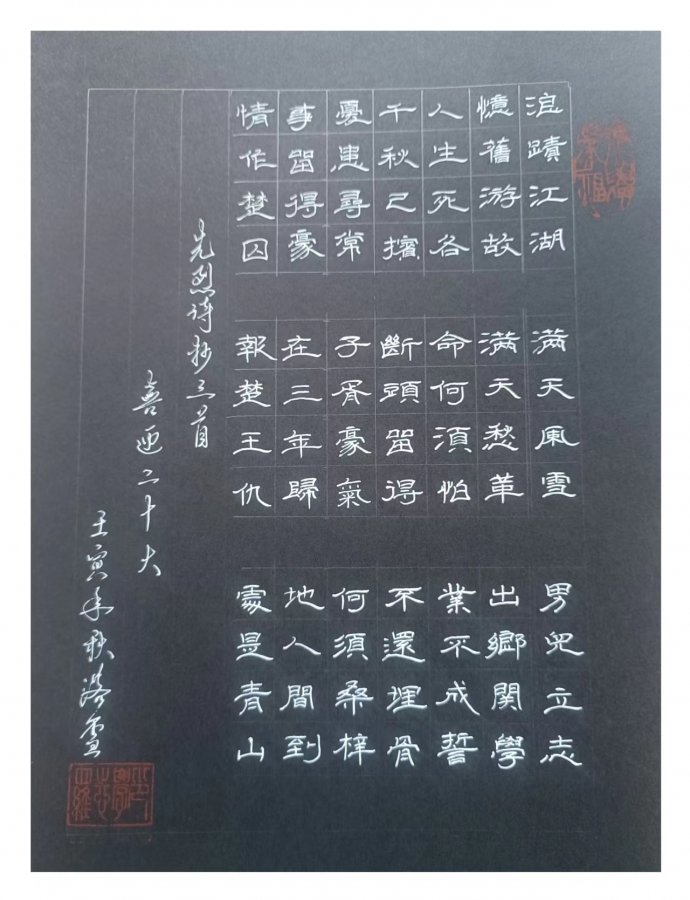 浪蹟江湖
憶舊游故
人生死各
千秋已擯
憂患尋常
事留得豪
情作楚囚
滿天風雪
滿天愁革
命何須怕
斷頭留得
子胥豪氣
在三年歸
報楚王仇
男兒立志
出鄉関學
業不成誓
不還埋骨
何須桑梓
地人間到
處是青山
先烈诗抄三首
喜迎二十大
壬寅年秋